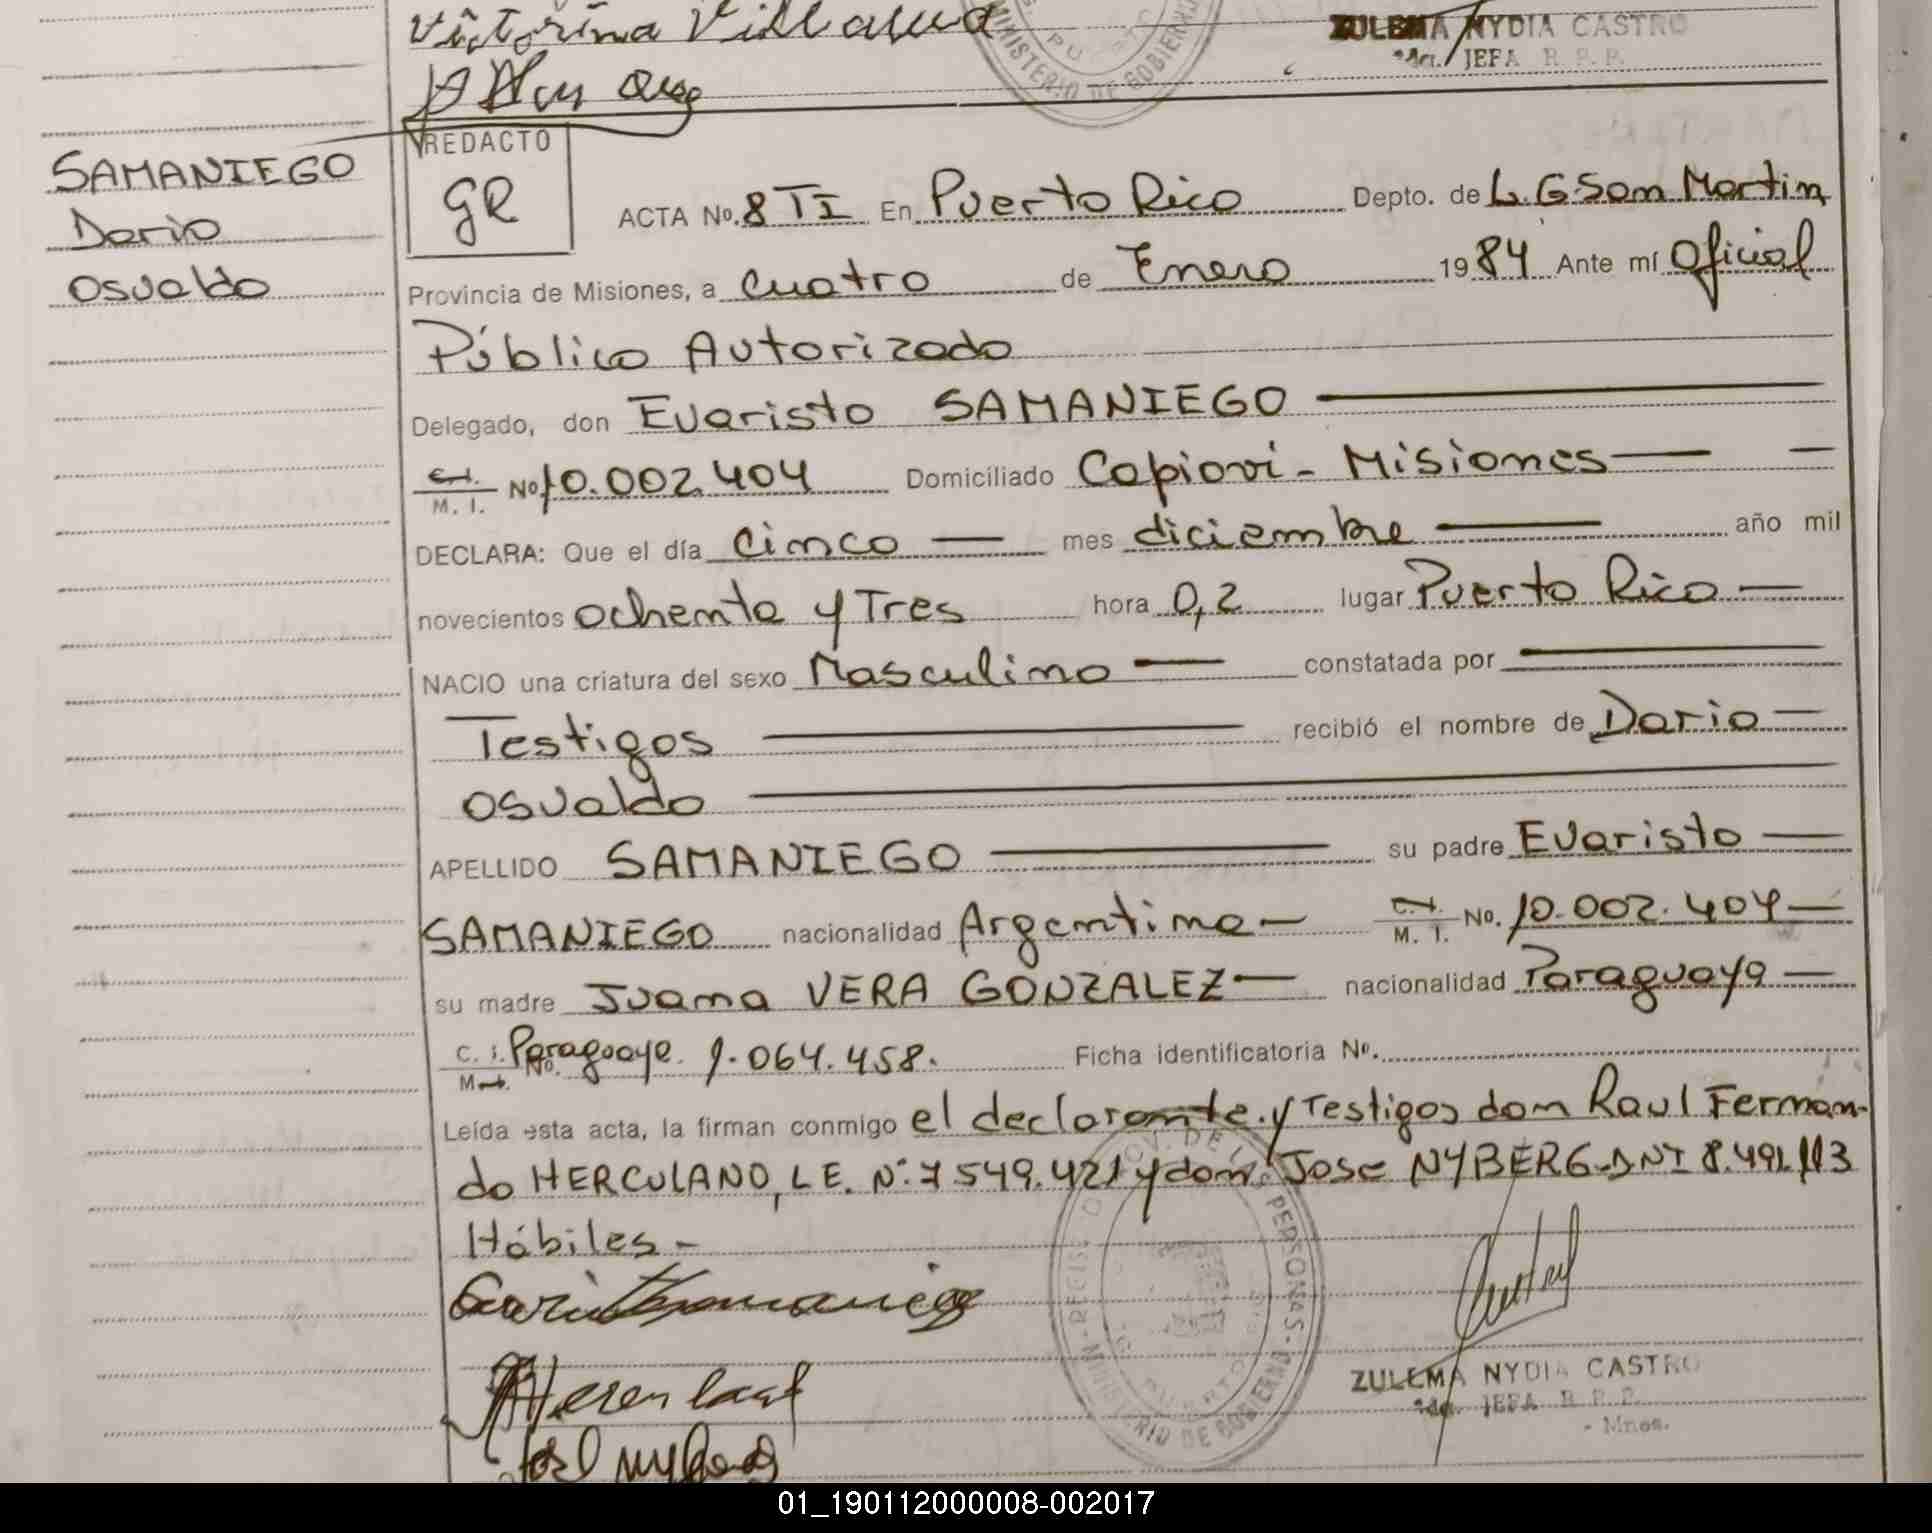 Victorina Villalva
ZULEMA NYDIA CASTRO
JEFA R. P. P.
MINISTERIO DE GOBIERNO
SAMANIEGO
Dario
Osvaldo
REDACTO
GR
ACTA No. 8 TI En Puerto Rico Depto. de L. G San Martin
Provincia de Misiones, a cuatro de Enero 1984 Ante mí Oficial
Público Autorizado
Delegado, don Evaristo SAMANIEGO
M. I. No 10.002.404 Domiciliado Capiovi - Misiones
DECLARA: Que el día cinco mes diciembre año mil
novecientos ochenta y Tres hora 0,2 lugar Puerto Rico
NACIO una criatura del sexo Masculino constatada por
Testigos recibió el nombre de Dario
Osvaldo
APELLIDO SAMANIEGO su padre Evaristo
SAMANIEGO nacionalidad Argentina M. I. No. 10.002.404
su madre Juana VERA GONZALEZ nacionalidad Paraguaya
C. I. Paraguaya No. 1.064.458. Ficha identificatoria No.
Leída esta acta, la firman conmigo el declarante y Testigos don Raul Fernan-
do HERCULANO, L.E. Nº 7.549.421 y don Jose NYBERG DNI 8.491.113
Hábiles -
ZULEMA NYDIA CASTRO
JEFA R. P. P.
- Mnes.
MINISTERIO DE GOBIERNO
01_190112000008-002017